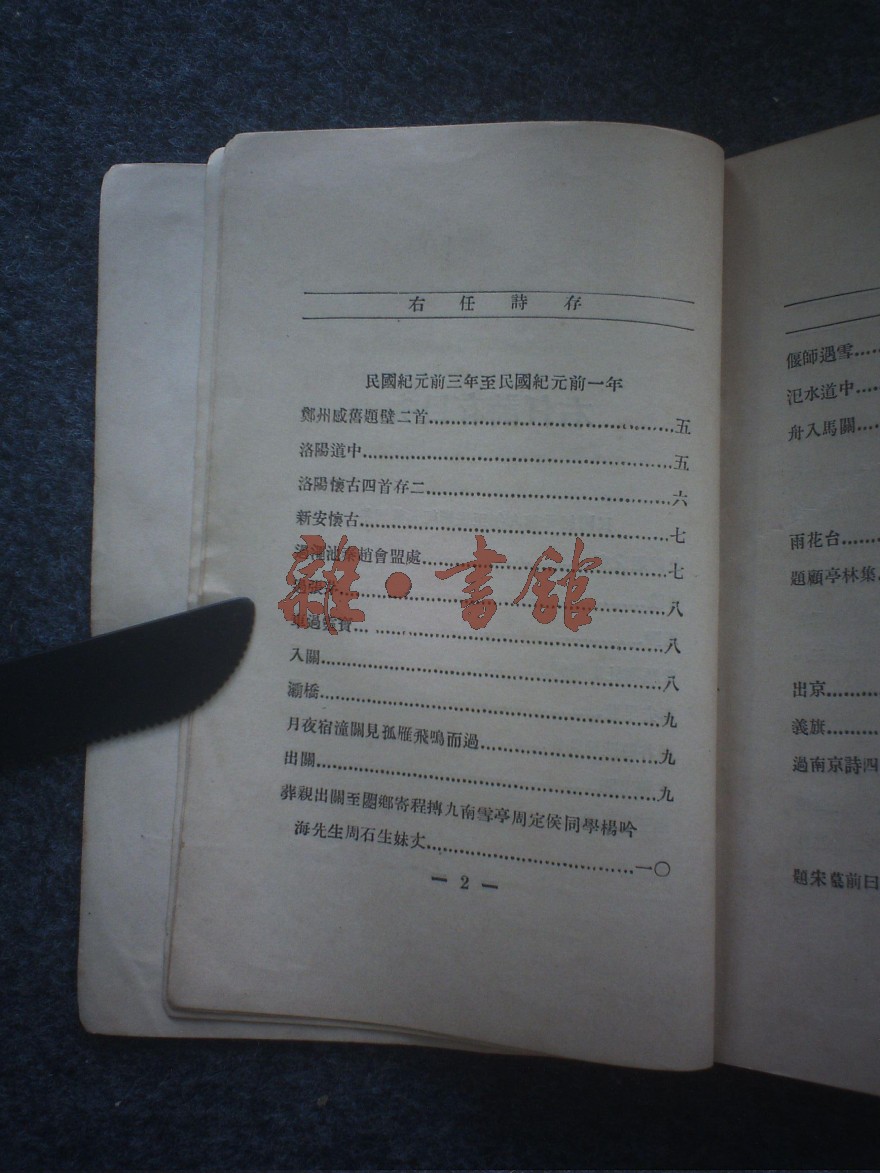 右任詩存
民國紀元前三年至民國紀元前一年
鄭州感舊題壁二首……五
洛陽道中……五
洛陽懷古四首存二……六
新安懷古……七
過澠池秦趙會盟處……七
過張茅……八
車過靈寶……八
入關……八
灞橋……九
月夜宿潼關見孤雁飛鳴而過……九
出關……九
葬親出關至閿鄉寄程搏九南雪亭周定侯同學楊吟
海先生周石生妹丈……一〇
— 2 —
雜·書館
偃師遇雪……
汜水道中……
舟入馬關……
雨花台……
題顧亭林集
出京……
義旗……
過南京詩四
題宋墓前曰